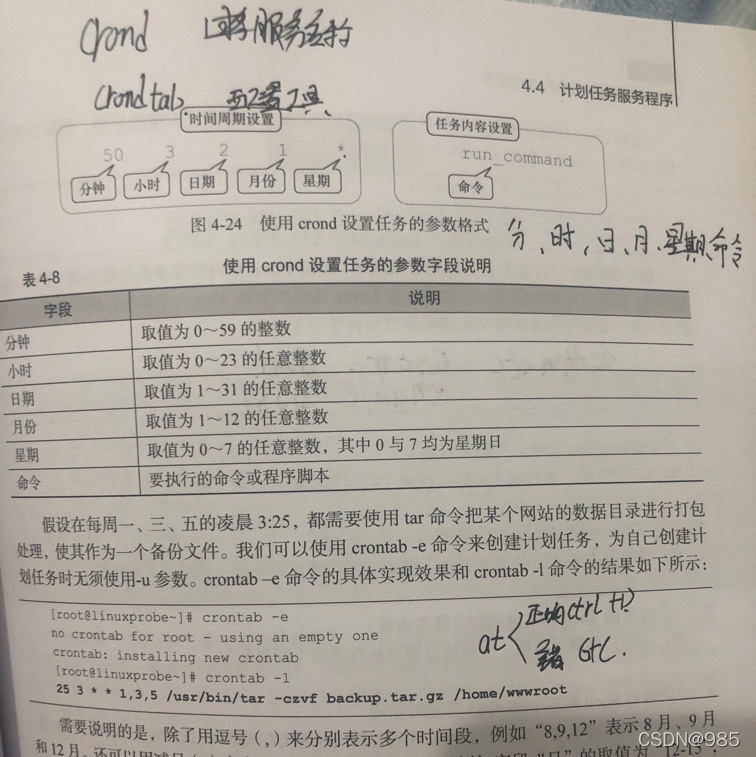 Crond 服务支持
Crondtab 配置工具
4.4 计划任务服务程序
时间周期设置
任务内容设置
50 3 2 1 *
run_command
分钟 小时 日期 月份 星期
命令
图 4-24 使用 crond 设置任务的参数格式
分、时,日、月、星期,命令
表 4-8 使用 crond 设置任务的参数字段说明
字段 说明
分钟 取值为 0～59 的整数
小时 取值为 0～23 的任意整数
日期 取值为 1～31 的任意整数
月份 取值为 1～12 的任意整数
星期 取值为 0～7 的任意整数，其中 0 与 7 均为星期日
命令 要执行的命令或程序脚本
假设在每周一、三、五的凌晨 3:25，都需要使用 tar 命令把某个网站的数据目录进行打包
处理，使其作为一个备份文件。我们可以使用 crontab -e 命令来创建计划任务，为自己创建计
划任务时无须使用-u 参数。crontab –e 命令的具体实现效果和 crontab -l 命令的结果如下所示：
[root@linuxprobe~]# crontab -e
no crontab for root - using an empty one
crontab: installing new crontab
[root@linuxprobe~]# crontab -l
25 3 * * 1,3,5 /usr/bin/tar -czvf backup.tar.gz /home/wwwroot
at
Ctrl +D
Ctrl C.
需要说明的是，除了用逗号（,）来分别表示多个时间段，例如“8,9,12”表示 8 月、9 月
和 12 月。还可以用减号
字段“日”的取值为“12-15”，
CSDN@985